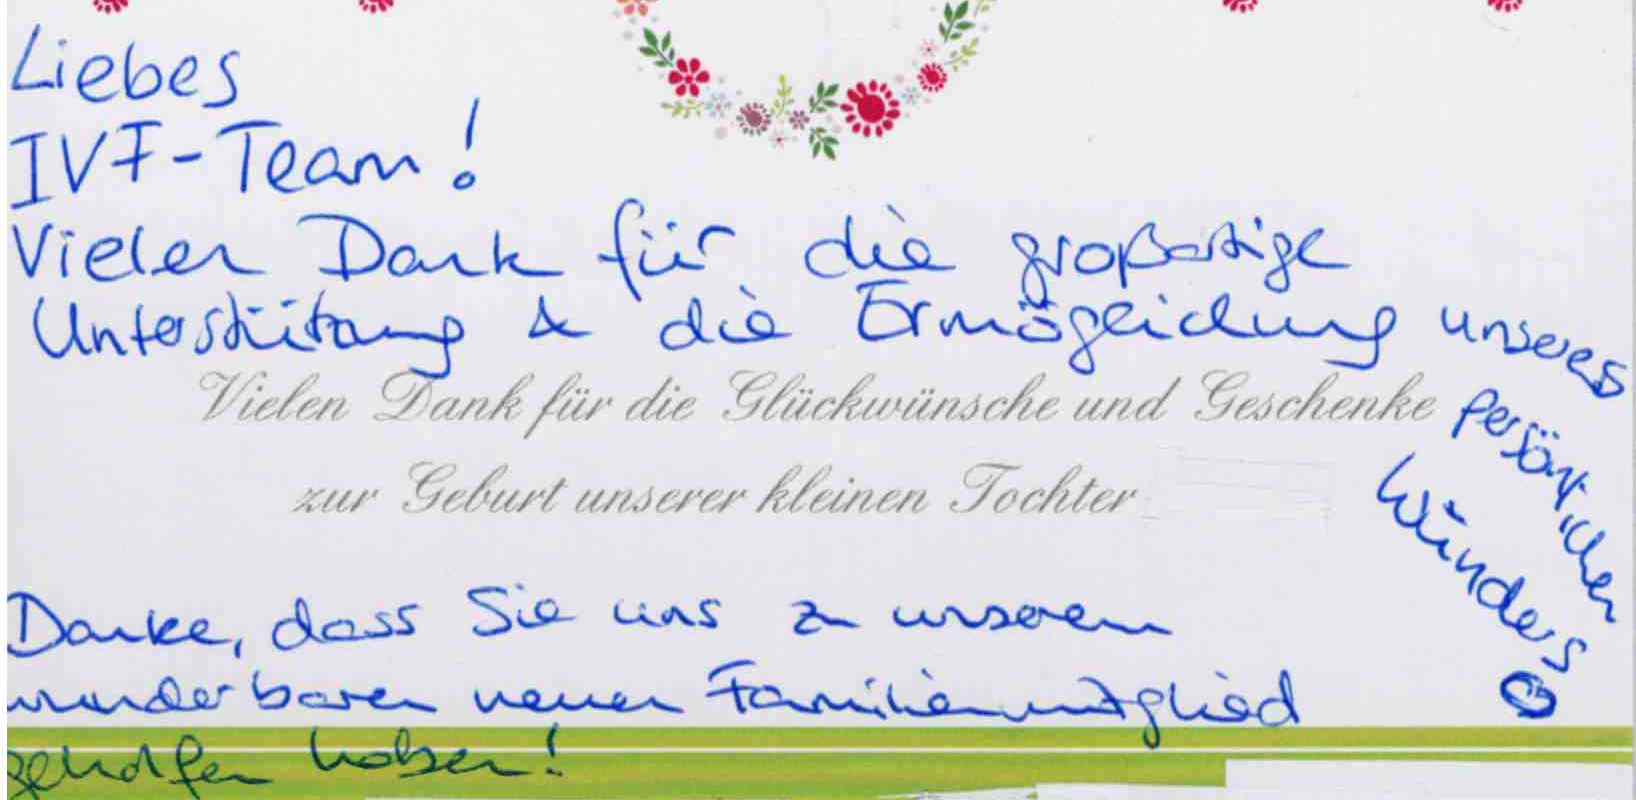 Liebes
IVF-Team!
Vielen Dank für die großartige
Unterstützung & die Ermöglichung unseres
persönlichen
Wunders
Vielen Dank für die Glückwünsche und Geschenke
zur Geburt unserer kleinen Tochter
Danke, dass Sie uns zu unserem
wunderbaren neuen Familienmitglied
geholfen haben!